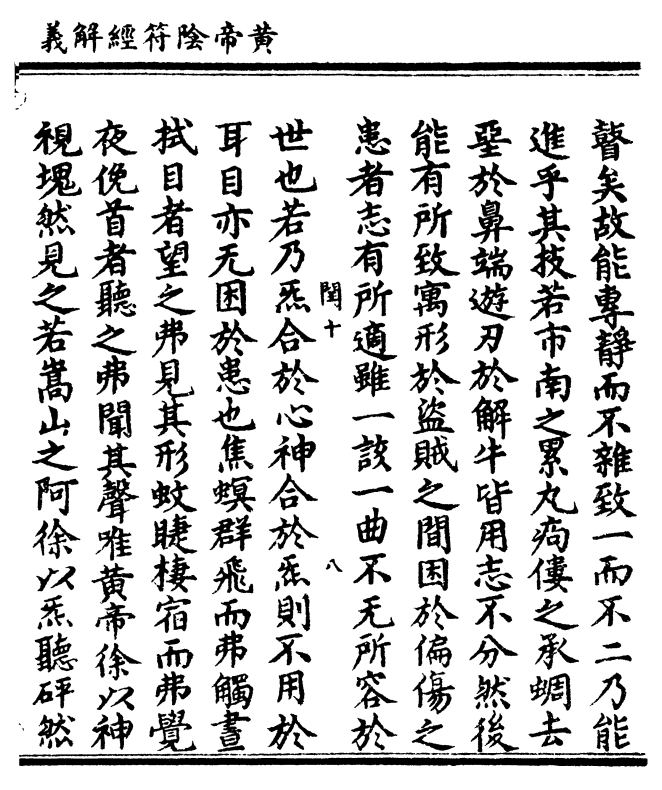 黃帝陰符經解義
瞽矣故能專靜而不雜致一而不二乃能
進乎其技若市南之累丸痀僂之承蜩去
堊於鼻端遊刃於解牛皆用志不分然後
能有所致寓形於盜賊之間困於偏傷之
患者志有所適雖一該一曲不无所容於
閏十 八
世也若乃炁合於心神合於炁則不用於
耳目亦无困於患也焦螟群飛而弗觸晝
拭目者望之弗見其形蚊睫棲宿而弗覺
夜俛首者聽之弗聞其聲唯黃帝徐以神
視塊然見之若嵩山之阿徐以炁聽砰然